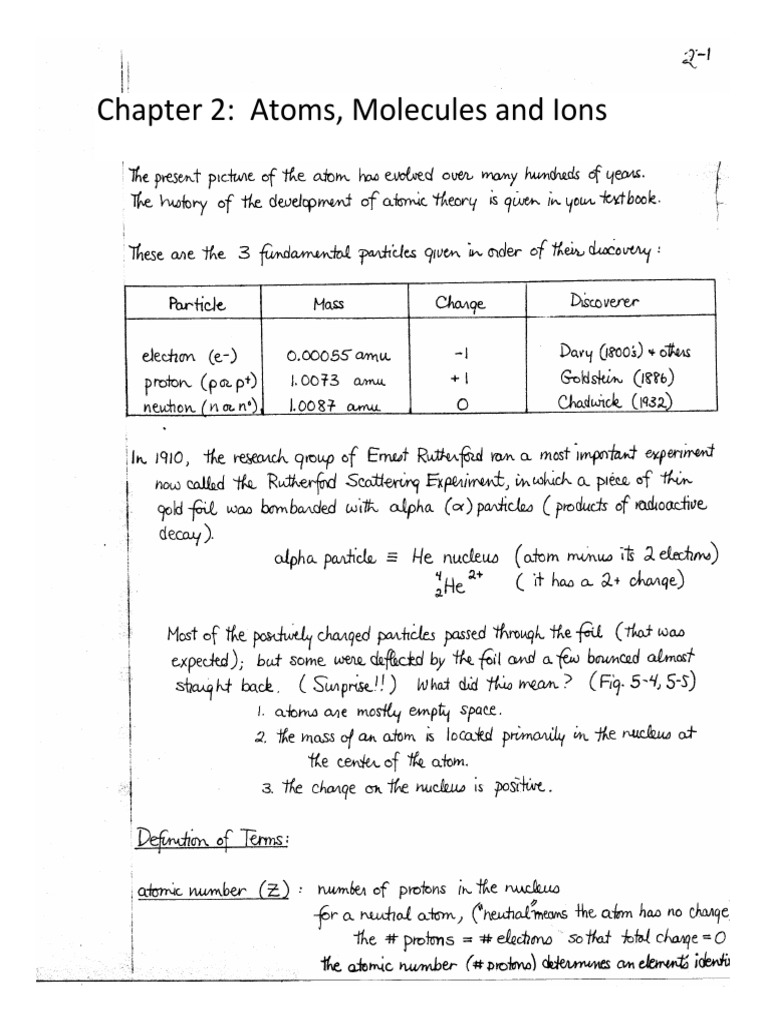 2-1
Chapter 2: Atoms, Molecules and Ions
The present picture of the atom has evolved over many hundreds of years.
The history of the development of atomic theory is given in your textbook.
These are the 3 fundamental particles given in order of their discovery:
Particle Mass Charge Discoverer
electron (e-) 0.00055 amu -1 Davy (1800's) + others
proton (p or p⁺) 1.0073 amu +1 Goldstein (1886)
neutron (n or n°) 1.0087 amu 0 Chadwick (1932)
In 1910, the research group of Ernest Rutherford ran a most important experiment
now called the Rutherford Scattering Experiment, in which a piece of thin
gold foil was bombarded with alpha (α) particles (products of radioactive
decay).
alpha particle ≡ He nucleus (atom minus its 2 electrons)
⁴₂He²⁺ (it has a 2+ charge)
Most of the positively charged particles passed through the foil (that was
expected); but some were deflected by the foil and a few bounced almost
straight back. (Surprise!!) What did this mean? (Fig. 5-4, 5-5)
1. atoms are mostly empty space.
2. the mass of an atom is located primarily in the nucleus at
the center of the atom.
3. the charge on the nucleus is positive.
Definition of Terms:
atomic number (Z) : number of protons in the nucleus
for a neutral atom, ("neutral" means the atom has no charge
the # protons = # electrons so that total charge = 0
the atomic number (# protons) determines an element's identi